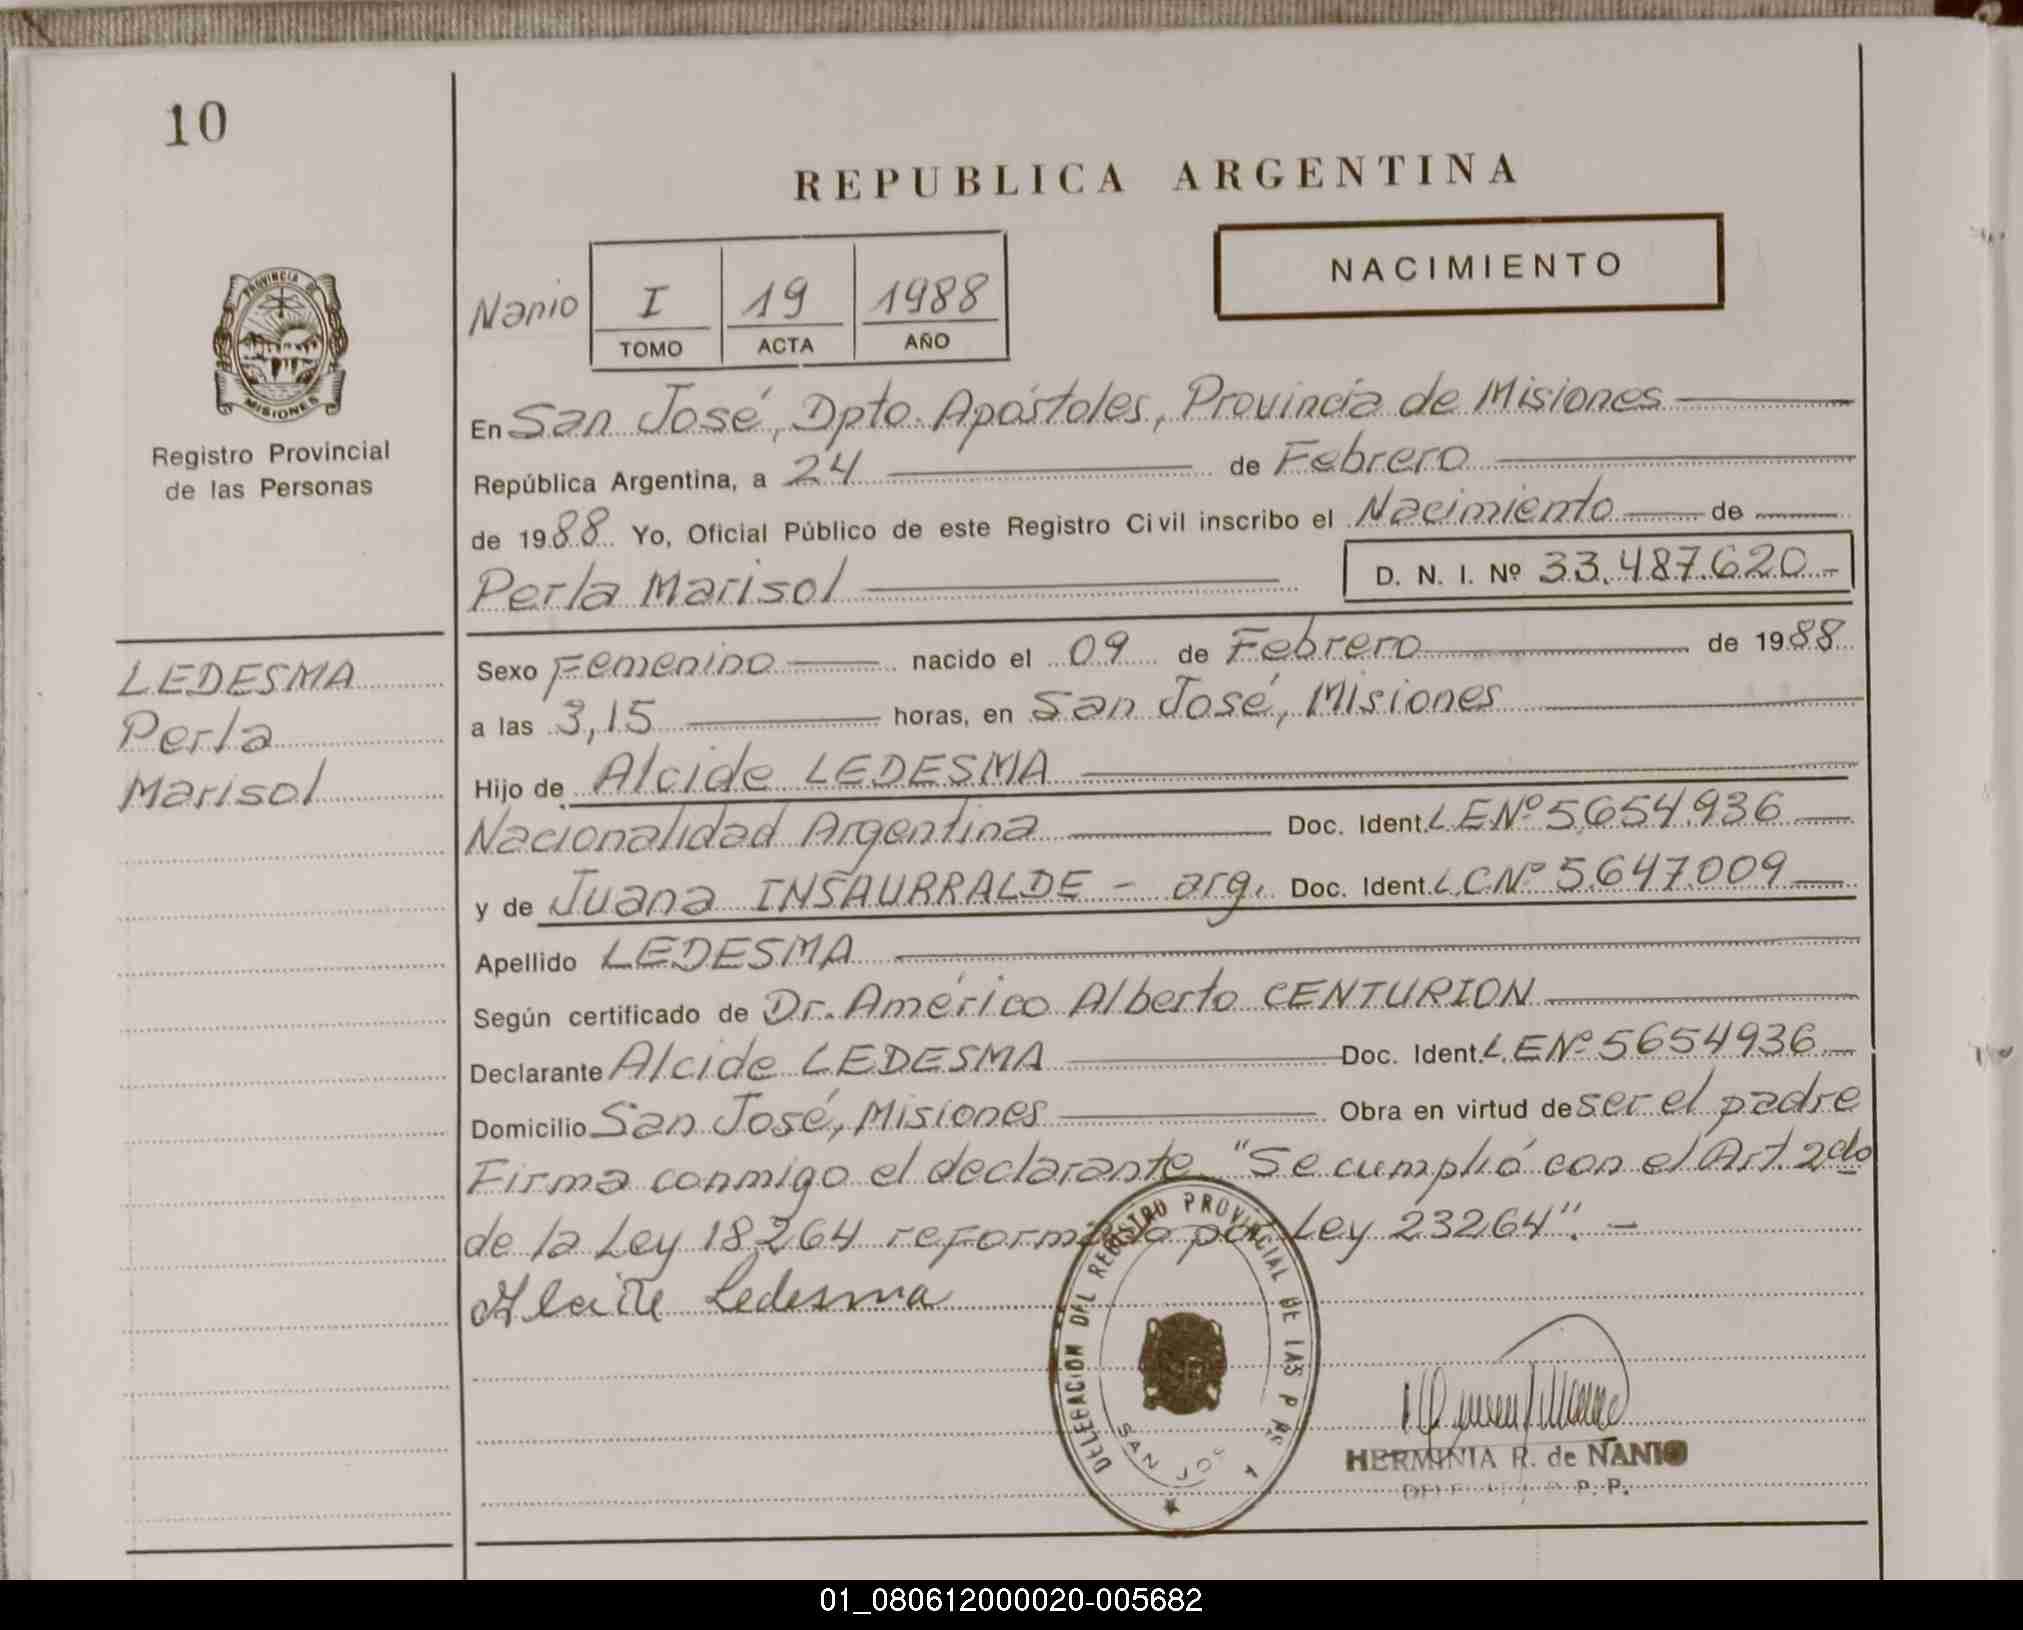 10
REPUBLICA ARGENTINA
NACIMIENTO
Nanio I 19 1988
TOMO ACTA AÑO
PROVINCIA DE
MISIONES
Registro Provincial
de las Personas
En San José, Dpto. Apóstoles, Provincia de Misiones
República Argentina, a 24 de Febrero
de 1988 Yo, Oficial Público de este Registro Civil inscribo el Nacimiento de
Perla Marisol D. N. I. Nº 33.487.620-
LEDESMA
Perla
Marisol
Sexo Femenino nacido el 09 de Febrero de 1988
a las 3,15 horas, en San José, Misiones
Hijo de Alcide LEDESMA
Nacionalidad Argentina Doc. Ident. L.E.Nº 5.654.936
y de Juana INSAURRALDE - arg. Doc. Ident. L.C.Nº 5.647.009
Apellido LEDESMA
Según certificado de Dr. Américo Alberto CENTURION
Declarante Alcide LEDESMA Doc. Ident. L.E.Nº 5654936
Domicilio San José, Misiones Obra en virtud de ser el padre
Firma conmigo el declarante "Se cumplió con el Art. 2do
de la Ley 18264 reformado por Ley 23264".-
Alcide Ledesma
DELEGACION DEL REGISTRO PROVINCIAL DE LAS
SAN JOSE
HERMINIA R. de NANIO
P. P.
01_080612000020-005682